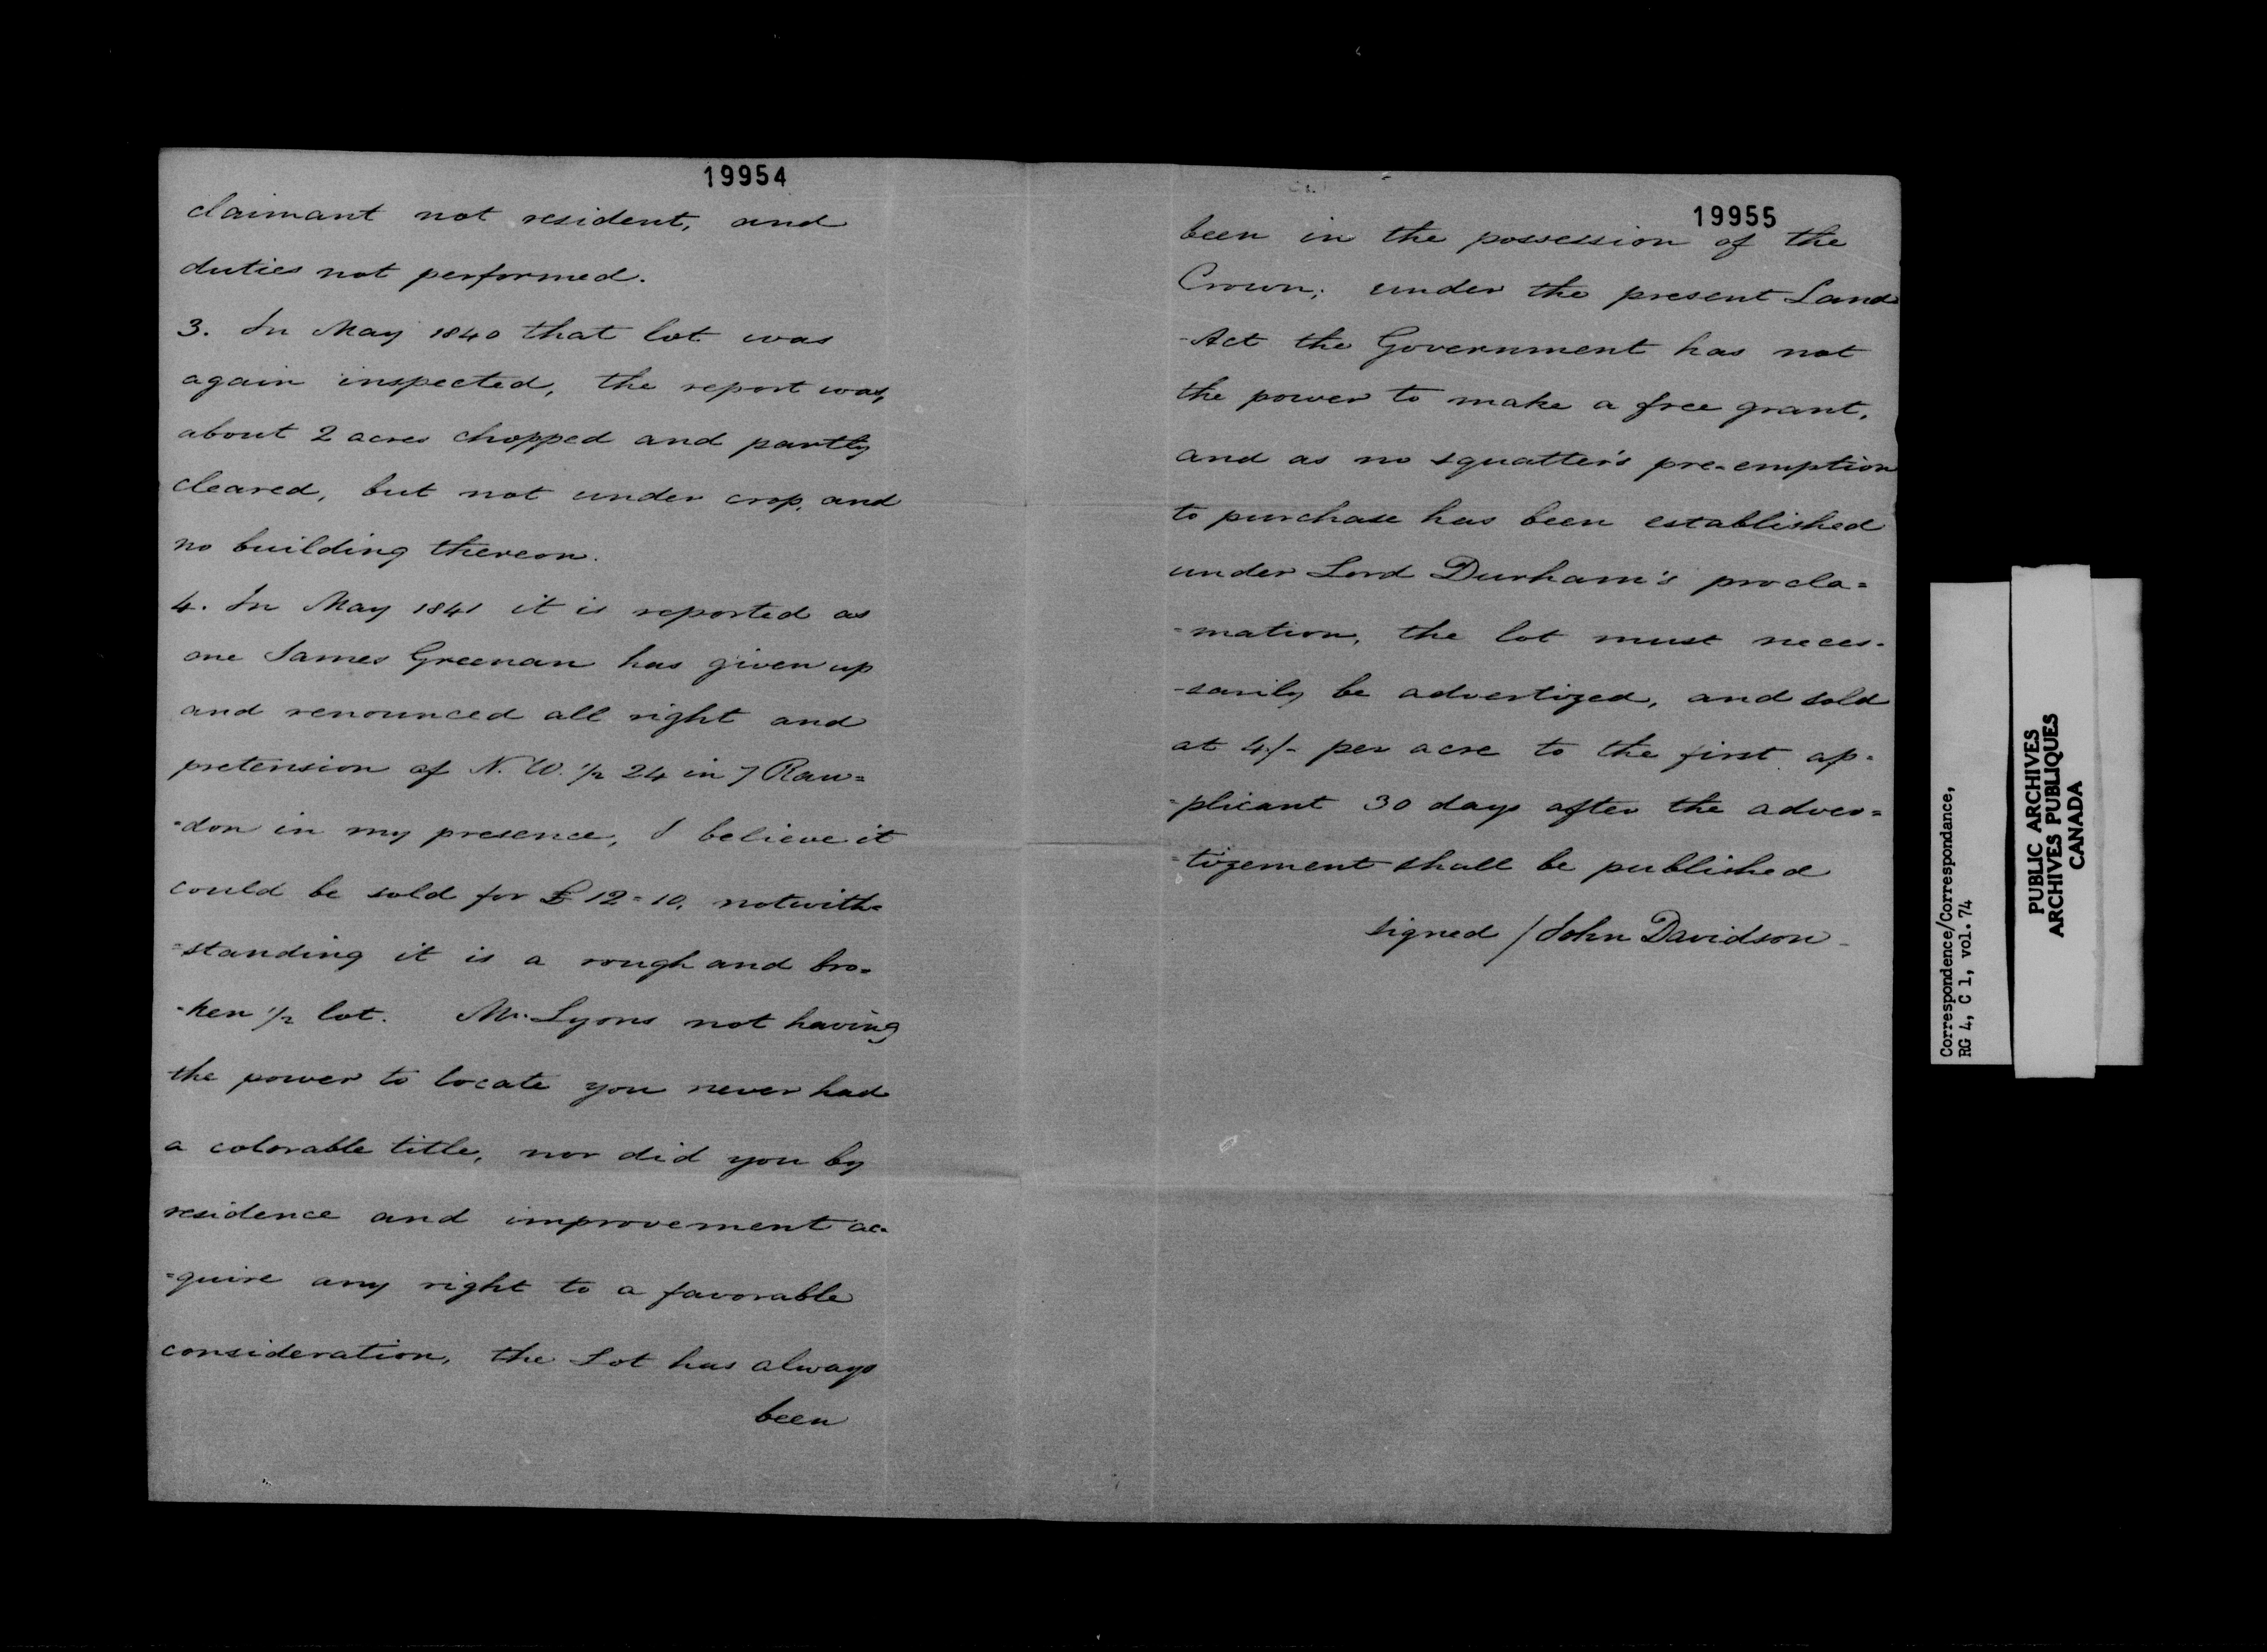 19954
claimant not resident, and
duties not performed.
3. In May 1840 that lot was
again inspected, the report was,
about 2 acres chopped and partly
cleared, but not under crop, and
no building thereon.
4. In May 1841 it is reported as
one James Greenan has given up
and renounced all right and
pretension of N.W. 1/2 24 in 7 Raw=
=don in my presence, I believe it
could be sold for £12=10, notwith=
=standing it is a rough and bro=
=ken 1/2 lot. Mr. Lyons not having
the power to locate you never had
a colorable title, nor did you by
residence and improvement ac=
=quire any right to a favorable
consideration, the Lot has always
been
19955
been in the possession of the
Crown; under the present Land
Act the Government has not
the power to make a free grant,
and as no squatter's pre-emption
to purchase has been established
under Lord Durham's procla=
=mation, the lot must neces=
=sarily be advertized, and sold
at 4/- per acre to the first ap=
=plicant 30 days after the adver=
=tizement shall be published
signed / John Davidson
Correspondence/Correspondance,
RG 4, C 1, vol. 74
PUBLIC ARCHIVES
ARCHIVES PUBLIQUES
CANADA